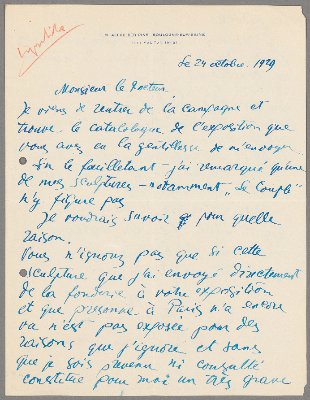 Lipchitz
BOULOGNE-SUR-SEINE
Le 24 octobre 1929
Monsieur le Docteur,
Je viens de rentrer de la campagne et
trouve le catalogue de l'exposition que
vous avez eu la gentillesse de m'envoyer.
En le feuilletant j'ai remarqué qu'une
de mes sculptures – notamment „Le Couple"
n'y figure pas
Je voudrais savoir pour quelle
raison.
Vous n'ignorez pas que si cette
sculpture que j'ai envoyé directement
de la fonderie à votre exposition
et que personne à Paris n'a encore
vu n'est pas exposée pour des
raisons que j'ignore et sans
que je sois prévenu ni consulté
constitue pour moi un très grave